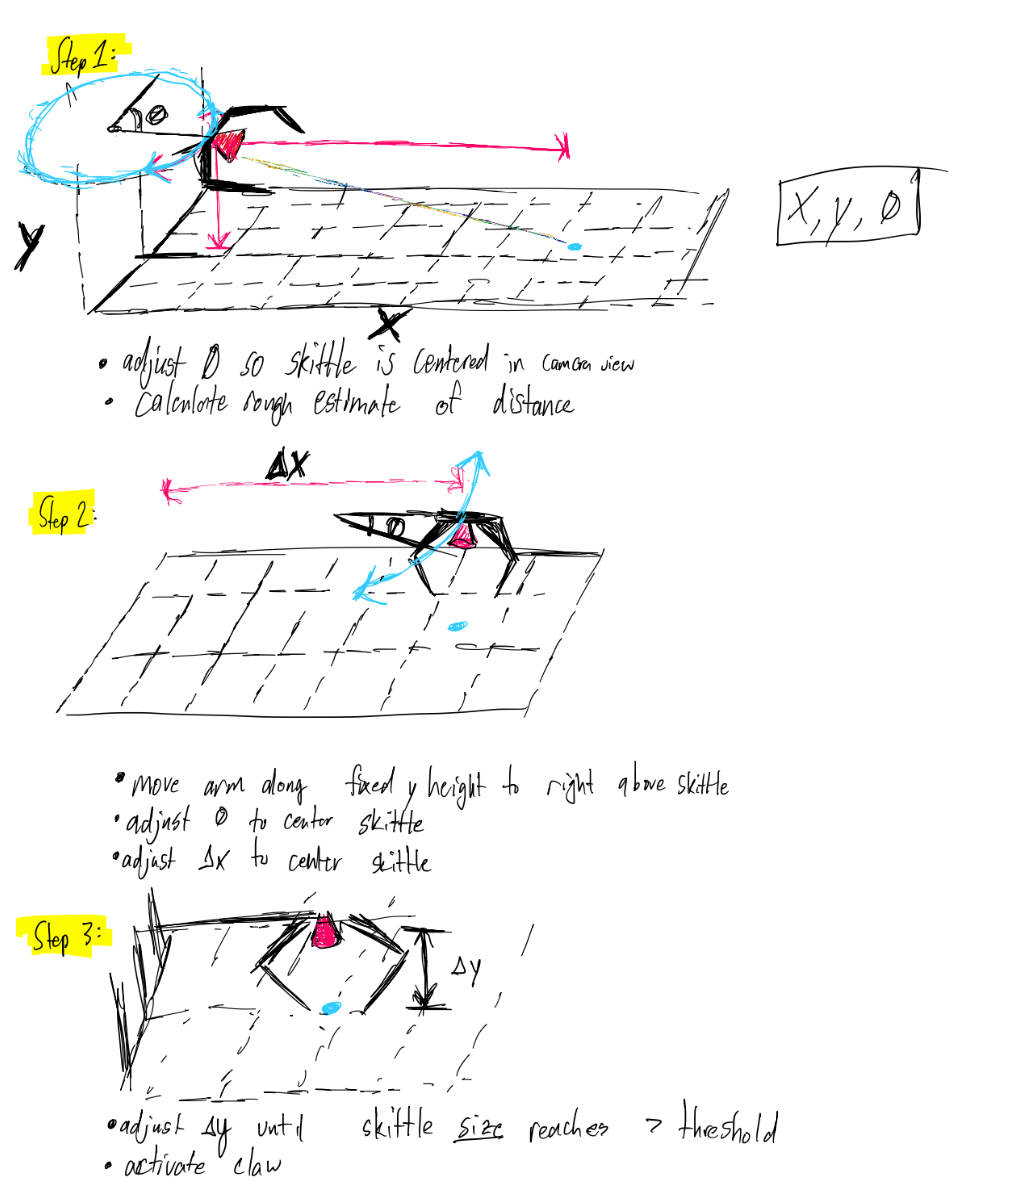 Step 1:
Ø
y
X, y, Ø
X
• adjust Ø so skittle is centered in camera view
• calculate rough estimate of distance
ΔX
Step 2:
Ø
• move arm along fixed y height to right above skittle
• adjust Ø to center skittle
• adjust Δx to center skittle
Step 3:
Δy
• adjust Δy until skittle size reaches > threshold
• activate claw